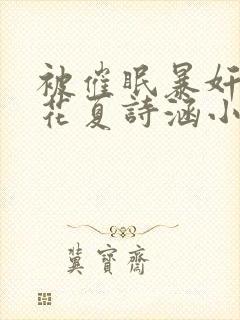 被催眠暴奸
花夏詩涵小
冀寶齋